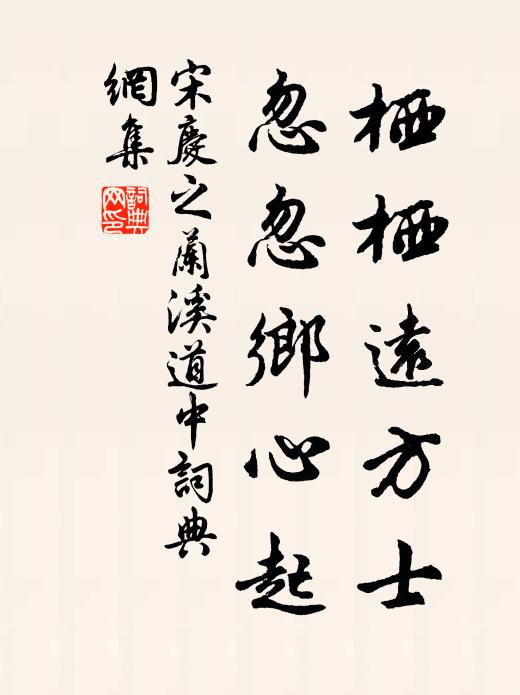 栖栖遠方士
忽忽鄉心起
宋慶之蘭溪道中詞典
網集
詞典网印